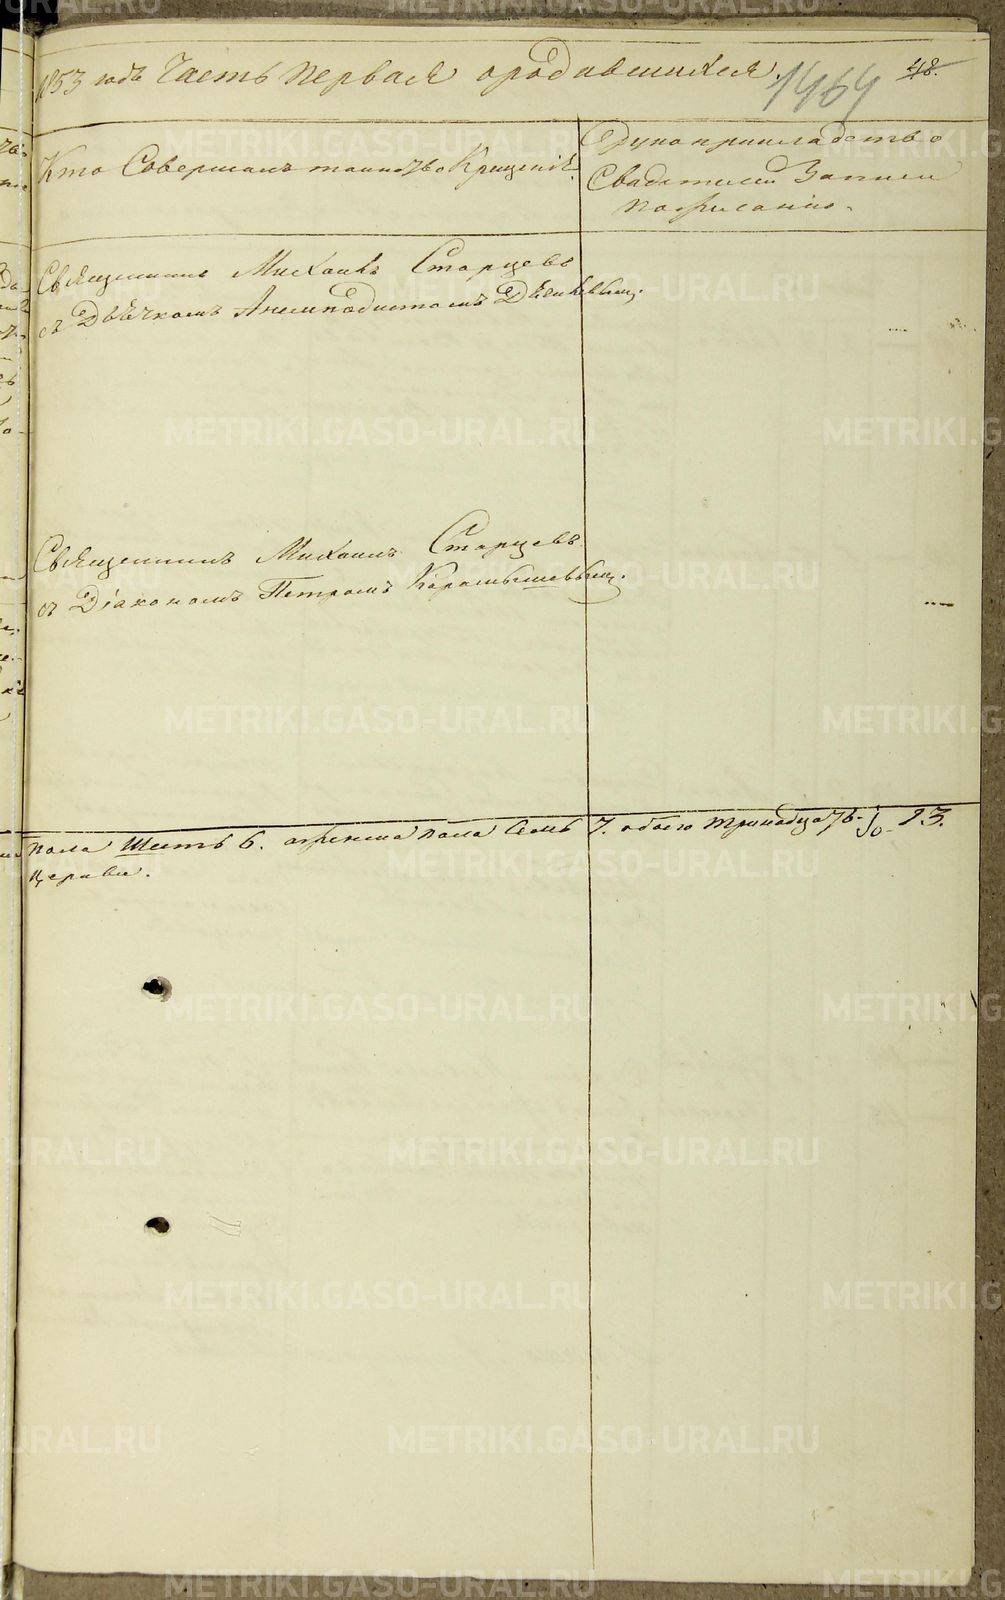 1853 годъ Часть первая ородившихся. 1464 48.
Кто Совершалъ таинство Крещенiя.
Рукоприкладство
Свидетелей Записи
по желанiю.
Священникъ Михаилъ Старцевъ
съ Дьячкомъ Анемподистомъ
Священникъ Михаилъ Старцевъ
съ Дiакономъ Петромъ Карамышевым.
пола Шесть 6. аженска пола Семь 7. обоего тринадцать 13.
Церкви.
METRIKI.GASO-URAL.RU